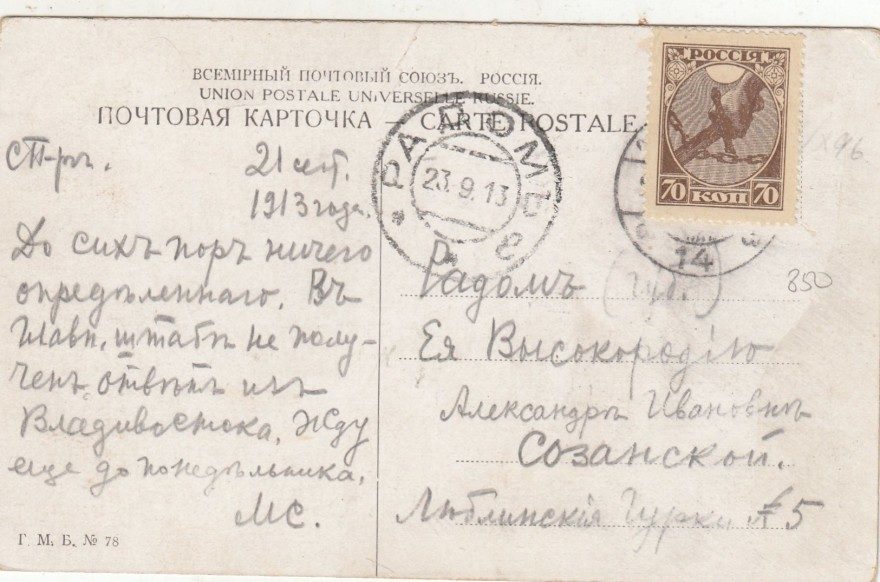 ВСЕМІРНЫЙ ПОЧТОВЫЙ СОЮЗЪ. РОССІЯ.
UNION POSTALE UNIVERSELLE RUSSIE.
ПОЧТОВАЯ КАРТОЧКА — CARTE POSTALE
РОССІЯ
70 КОП 70
РАДОМЪ
23.9.13
14
СП-ръ. 21 сент.
1913 года.
До сихъ поръ ничего
опредѣленнаго. Въ
Главн. штабѣ не полу-
ченъ отвѣтъ изъ
Владивостока, Жду
еще до понедѣльника.
МС.
Радомъ
(Губ.)
350
Ея Высокородію
Александрѣ Ивановнѣ
Созанской.
Люблинскія 5
Г. М. Б. № 78